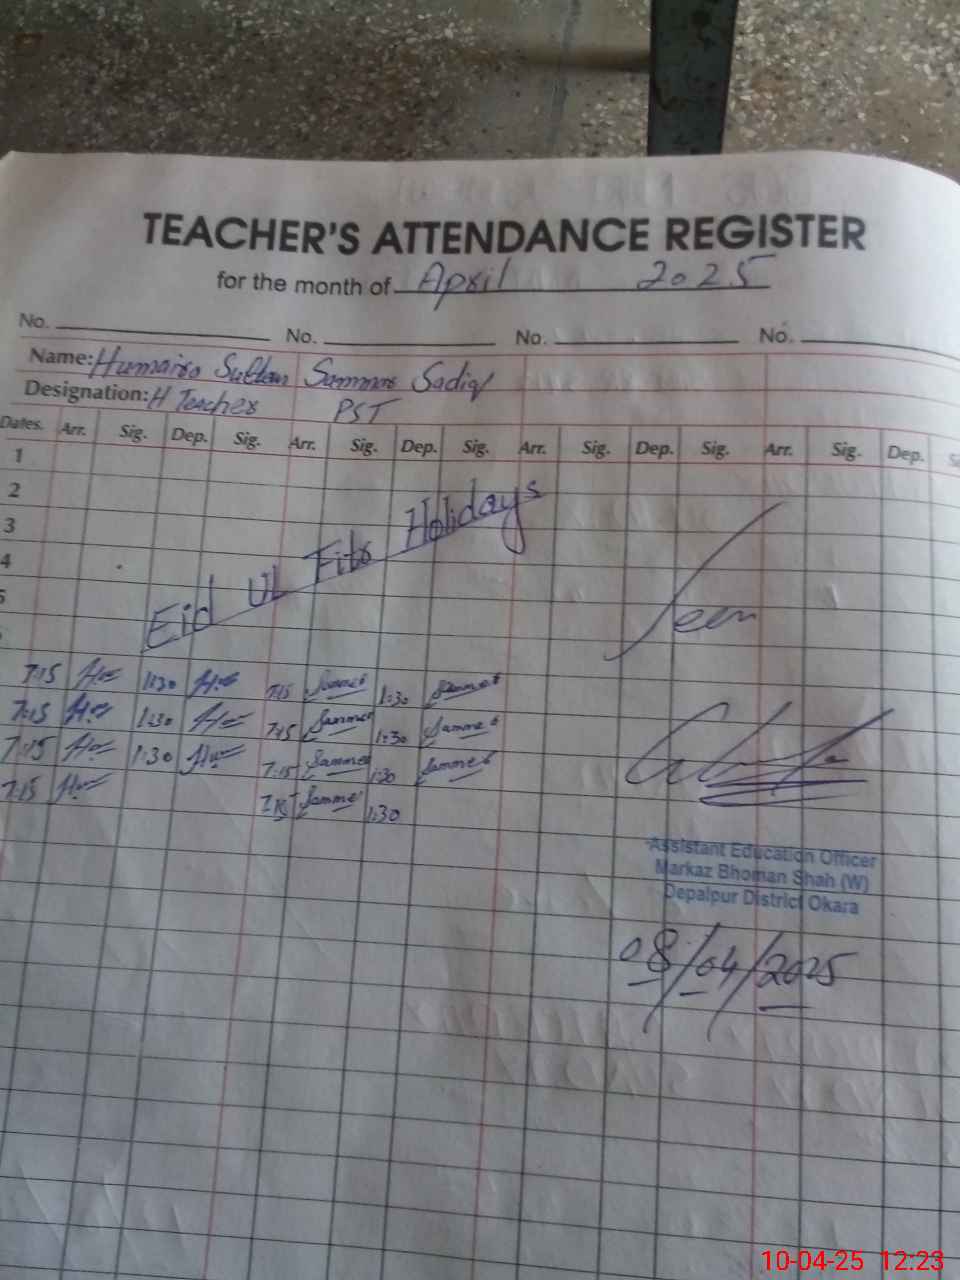 TEACHER'S ATTENDANCE REGISTER
for the month of April 2025
No. No. No. No.
Name: Humaira Sultan Sammar Sadiq
Designation: H Teacher PST
Dates. Arr. Sig. Dep. Sig. Arr. Sig. Dep. Sig. Arr. Sig. Dep. Sig. Arr. Sig. Dep.
1
2
3
4
5
Eid Ul Fitr Holidays
Seen
7:15 1:30 7:15 1:30
7:15 1:30 7:15 1:30
7:15 1:30 7:15 1:30
7:15 7:15 1:30
Assistant Education Officer
Markaz Bhoman Shah (W)
Depalpur District Okara
08/04/2025
10-04-25 12:23